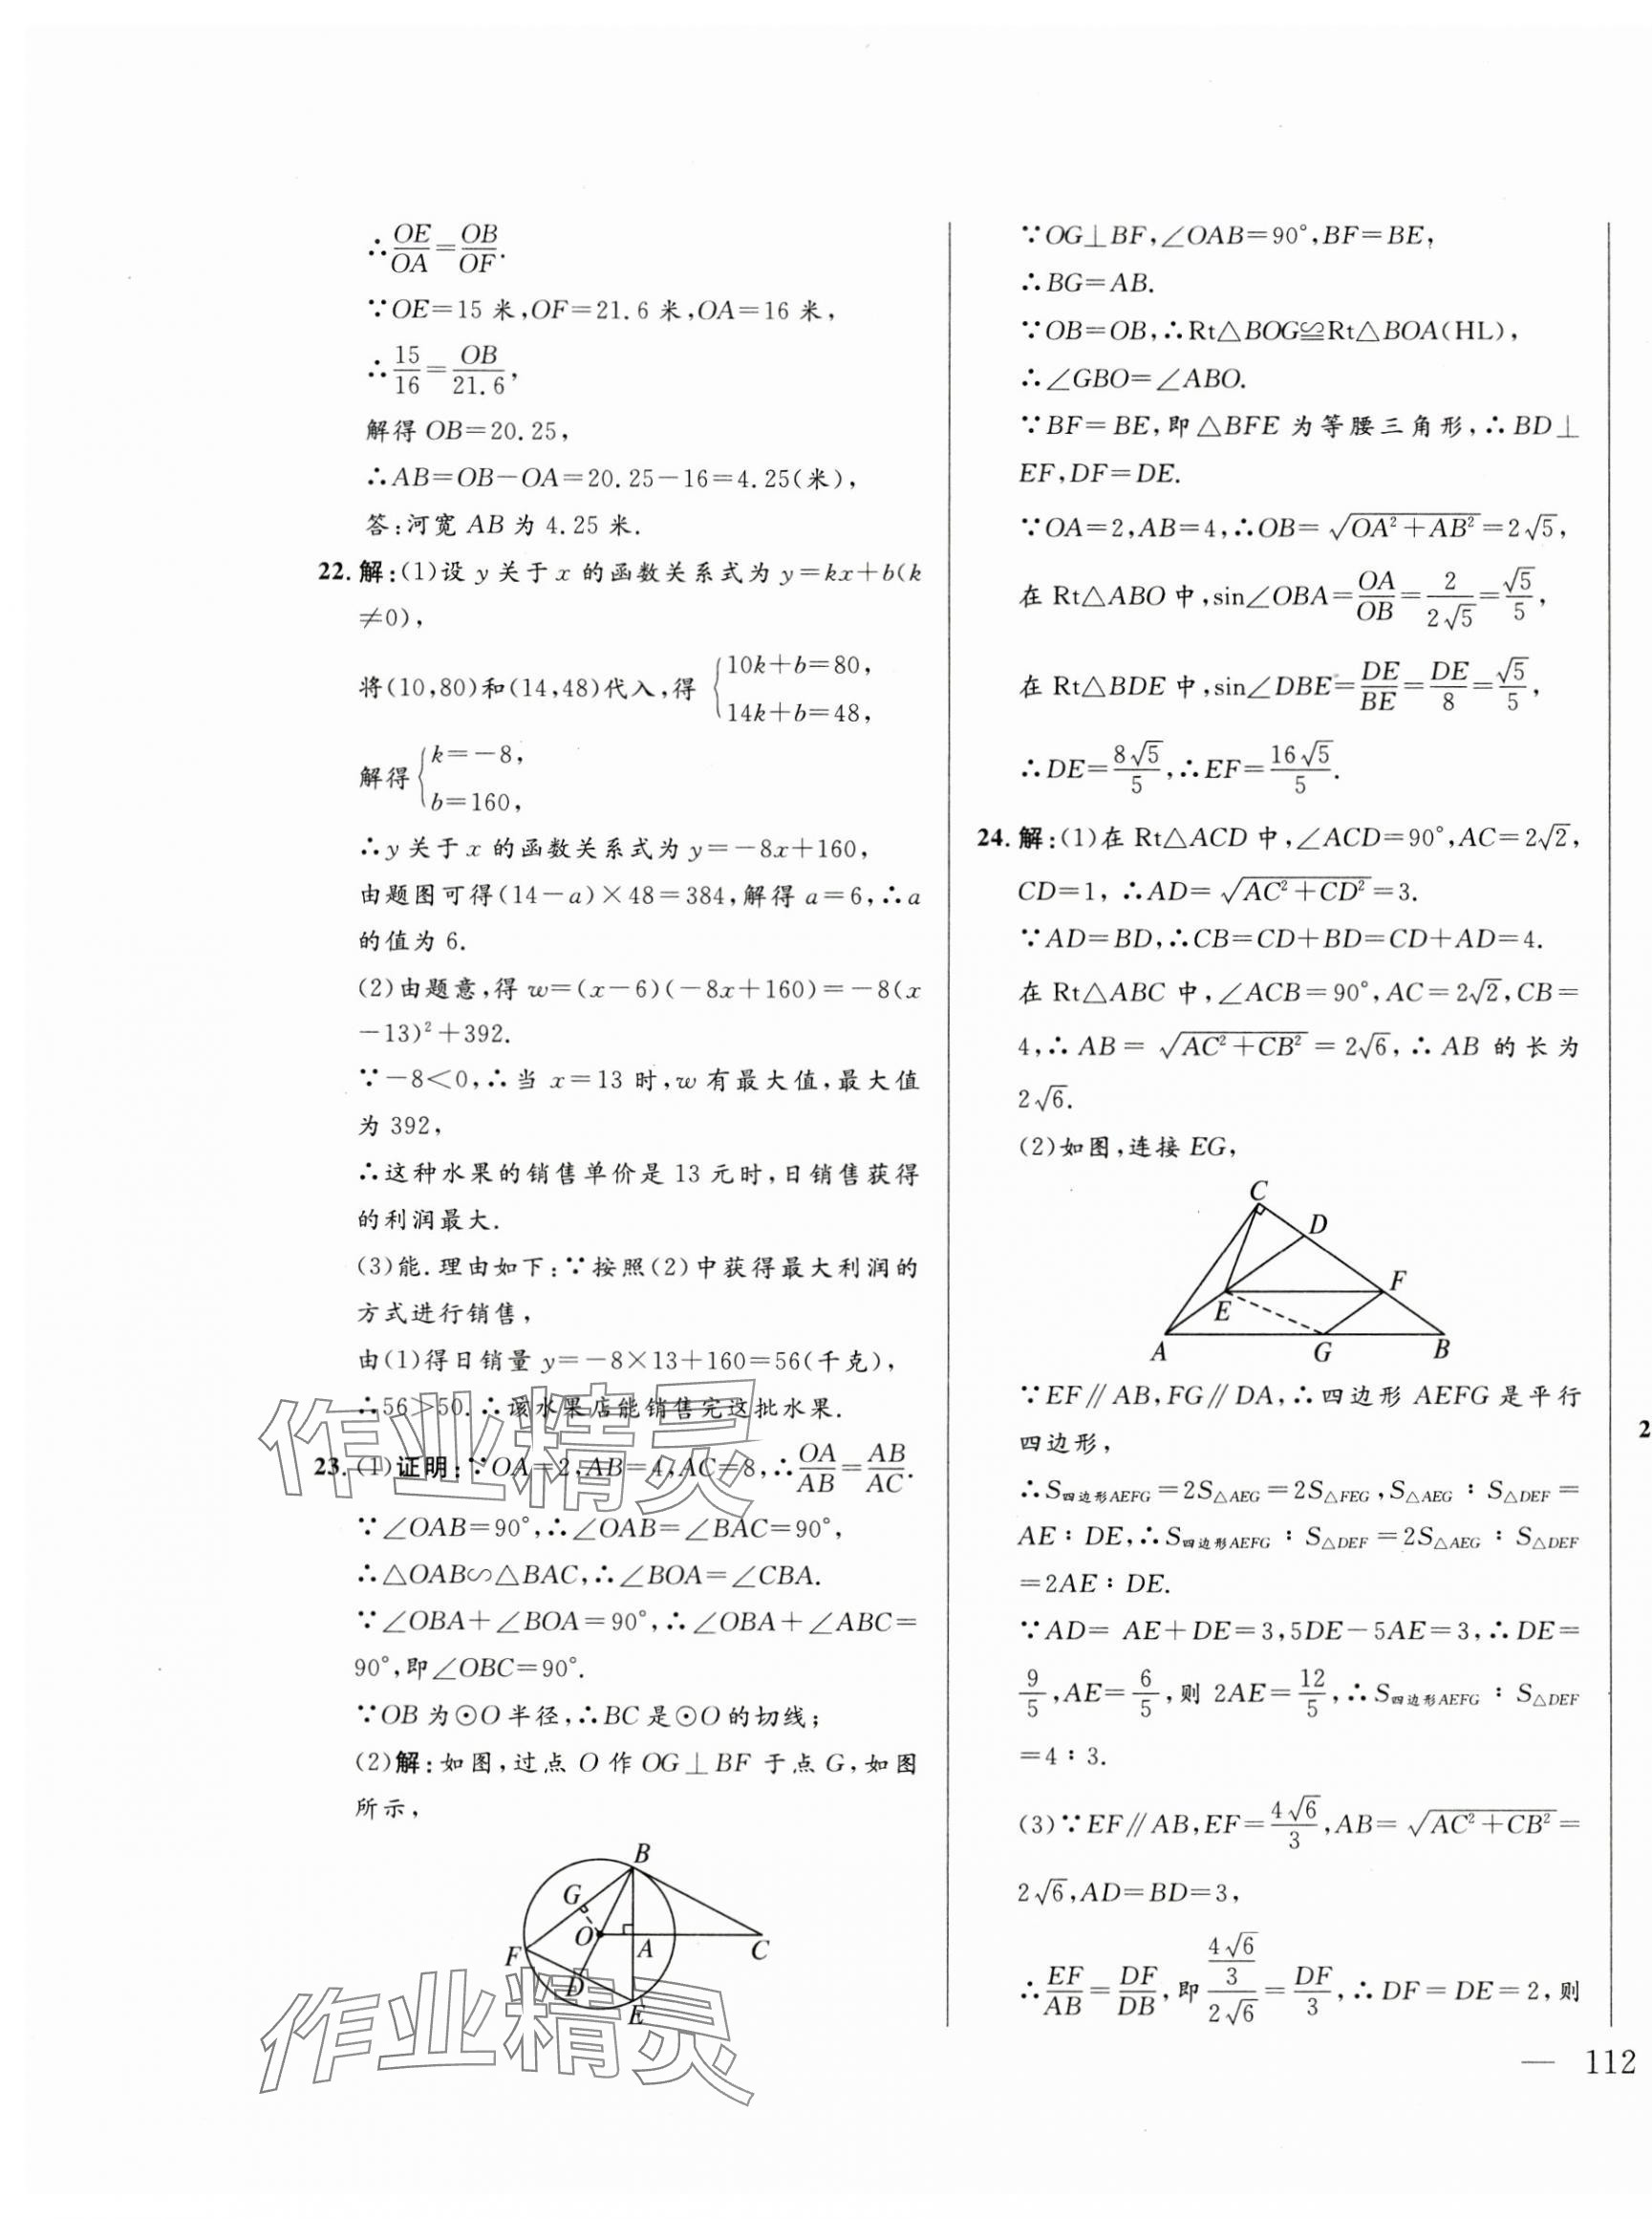 ∴OE/OA=OB/OF.
∵OE=15 米,OF=21.6 米,OA=16 米,
∴15/16=OB/21.6,
解得 OB=20.25,
∴AB=OB−OA=20.25−16=4.25(米),
答:河宽 AB 为 4.25 米.
22. 解:(1)设 y 关于 x 的函数关系式为 y=kx+b(k
≠0),
将(10,80)和(14,48)代入,得 {10k+b=80,
14k+b=48,
解得{k=−8,
b=160,
∴y 关于 x 的函数关系式为 y=−8x+160,
由题图可得(14−a)×48=384,解得 a=6,∴a
的值为 6.
(2)由题意,得 w=(x−6)(−8x+160)=−8(x
−13)²+392.
∵−8<0,∴当 x=13 时,w 有最大值,最大值
为 392,
∴这种水果的销售单价是 13 元时,日销售获得
的利润最大.
(3)能.理由如下:∵按照(2)中获得最大利润的
方式进行销售,
由(1)得日销量 y=−8×13+160=56(千克),
∴56>50.∴该水果店能销售完这批水果.
23. (1)证明:∵OA=2,AB=4,AC=8,∴OA/AB=AB/AC.
∵∠OAB=90°,∴∠OAB=∠BAC=90°,
∴△OAB∽△BAC,∴∠BOA=∠CBA.
∵∠OBA+∠BOA=90°,∴∠OBA+∠ABC=
90°,即∠OBC=90°.
∵OB 为⊙O 半径,∴BC 是⊙O 的切线;
(2)解:如图,过点 O 作 OG⊥BF 于点 G,如图
所示,
B
G
O
A
C
F
D
E
作业精灵
作业精灵
∵OG⊥BF,∠OAB=90°,BF=BE,
∴BG=AB.
∵OB=OB,∴Rt△BOG≌Rt△BOA(HL),
∴∠GBO=∠ABO.
∵BF=BE,即△BFE 为等腰三角形,∴BD⊥
EF,DF=DE.
∵OA=2,AB=4,∴OB=√(OA²+AB²)=2√5,
在 Rt△ABO 中,sin∠OBA=OA/OB=2/(2√5)=√5/5,
在 Rt△BDE 中,sin∠DBE=DE/BE=DE/8=√5/5,
∴DE=8√5/5,∴EF=16√5/5.
24. 解:(1)在 Rt△ACD 中,∠ACD=90°,AC=2√2,
CD=1, ∴AD=√(AC²+CD²)=3.
∵AD=BD,∴CB=CD+BD=CD+AD=4.
在 Rt△ABC 中,∠ACB=90°,AC=2√2,CB=
4,∴AB=√(AC²+CB²)=2√6,∴AB 的长为
2√6.
(2)如图,连接 EG,
C
D
F
E
A
G
B
∵EF∥AB,FG∥DA,∴四边形 AEFG 是平行
四边形,
∴S四边形AEFG=2S△AEG=2S△FEG,S△AEG∶S△DEF=
AE∶DE,∴S四边形AEFG∶S△DEF=2S△AEG∶S△DEF
=2AE∶DE.
∵AD=AE+DE=3,5DE−5AE=3,∴DE=
9/5,AE=6/5,则 2AE=12/5,∴S四边形AEFG∶S△DEF
=4∶3.
(3)∵EF∥AB,EF=4√6/3,AB=√(AC²+CB²)=
2√6,AD=BD=3,
∴EF/AB=DF/DB,即 (4√6/3)/(2√6)=DF/3,∴DF=DE=2,则
— 112
2